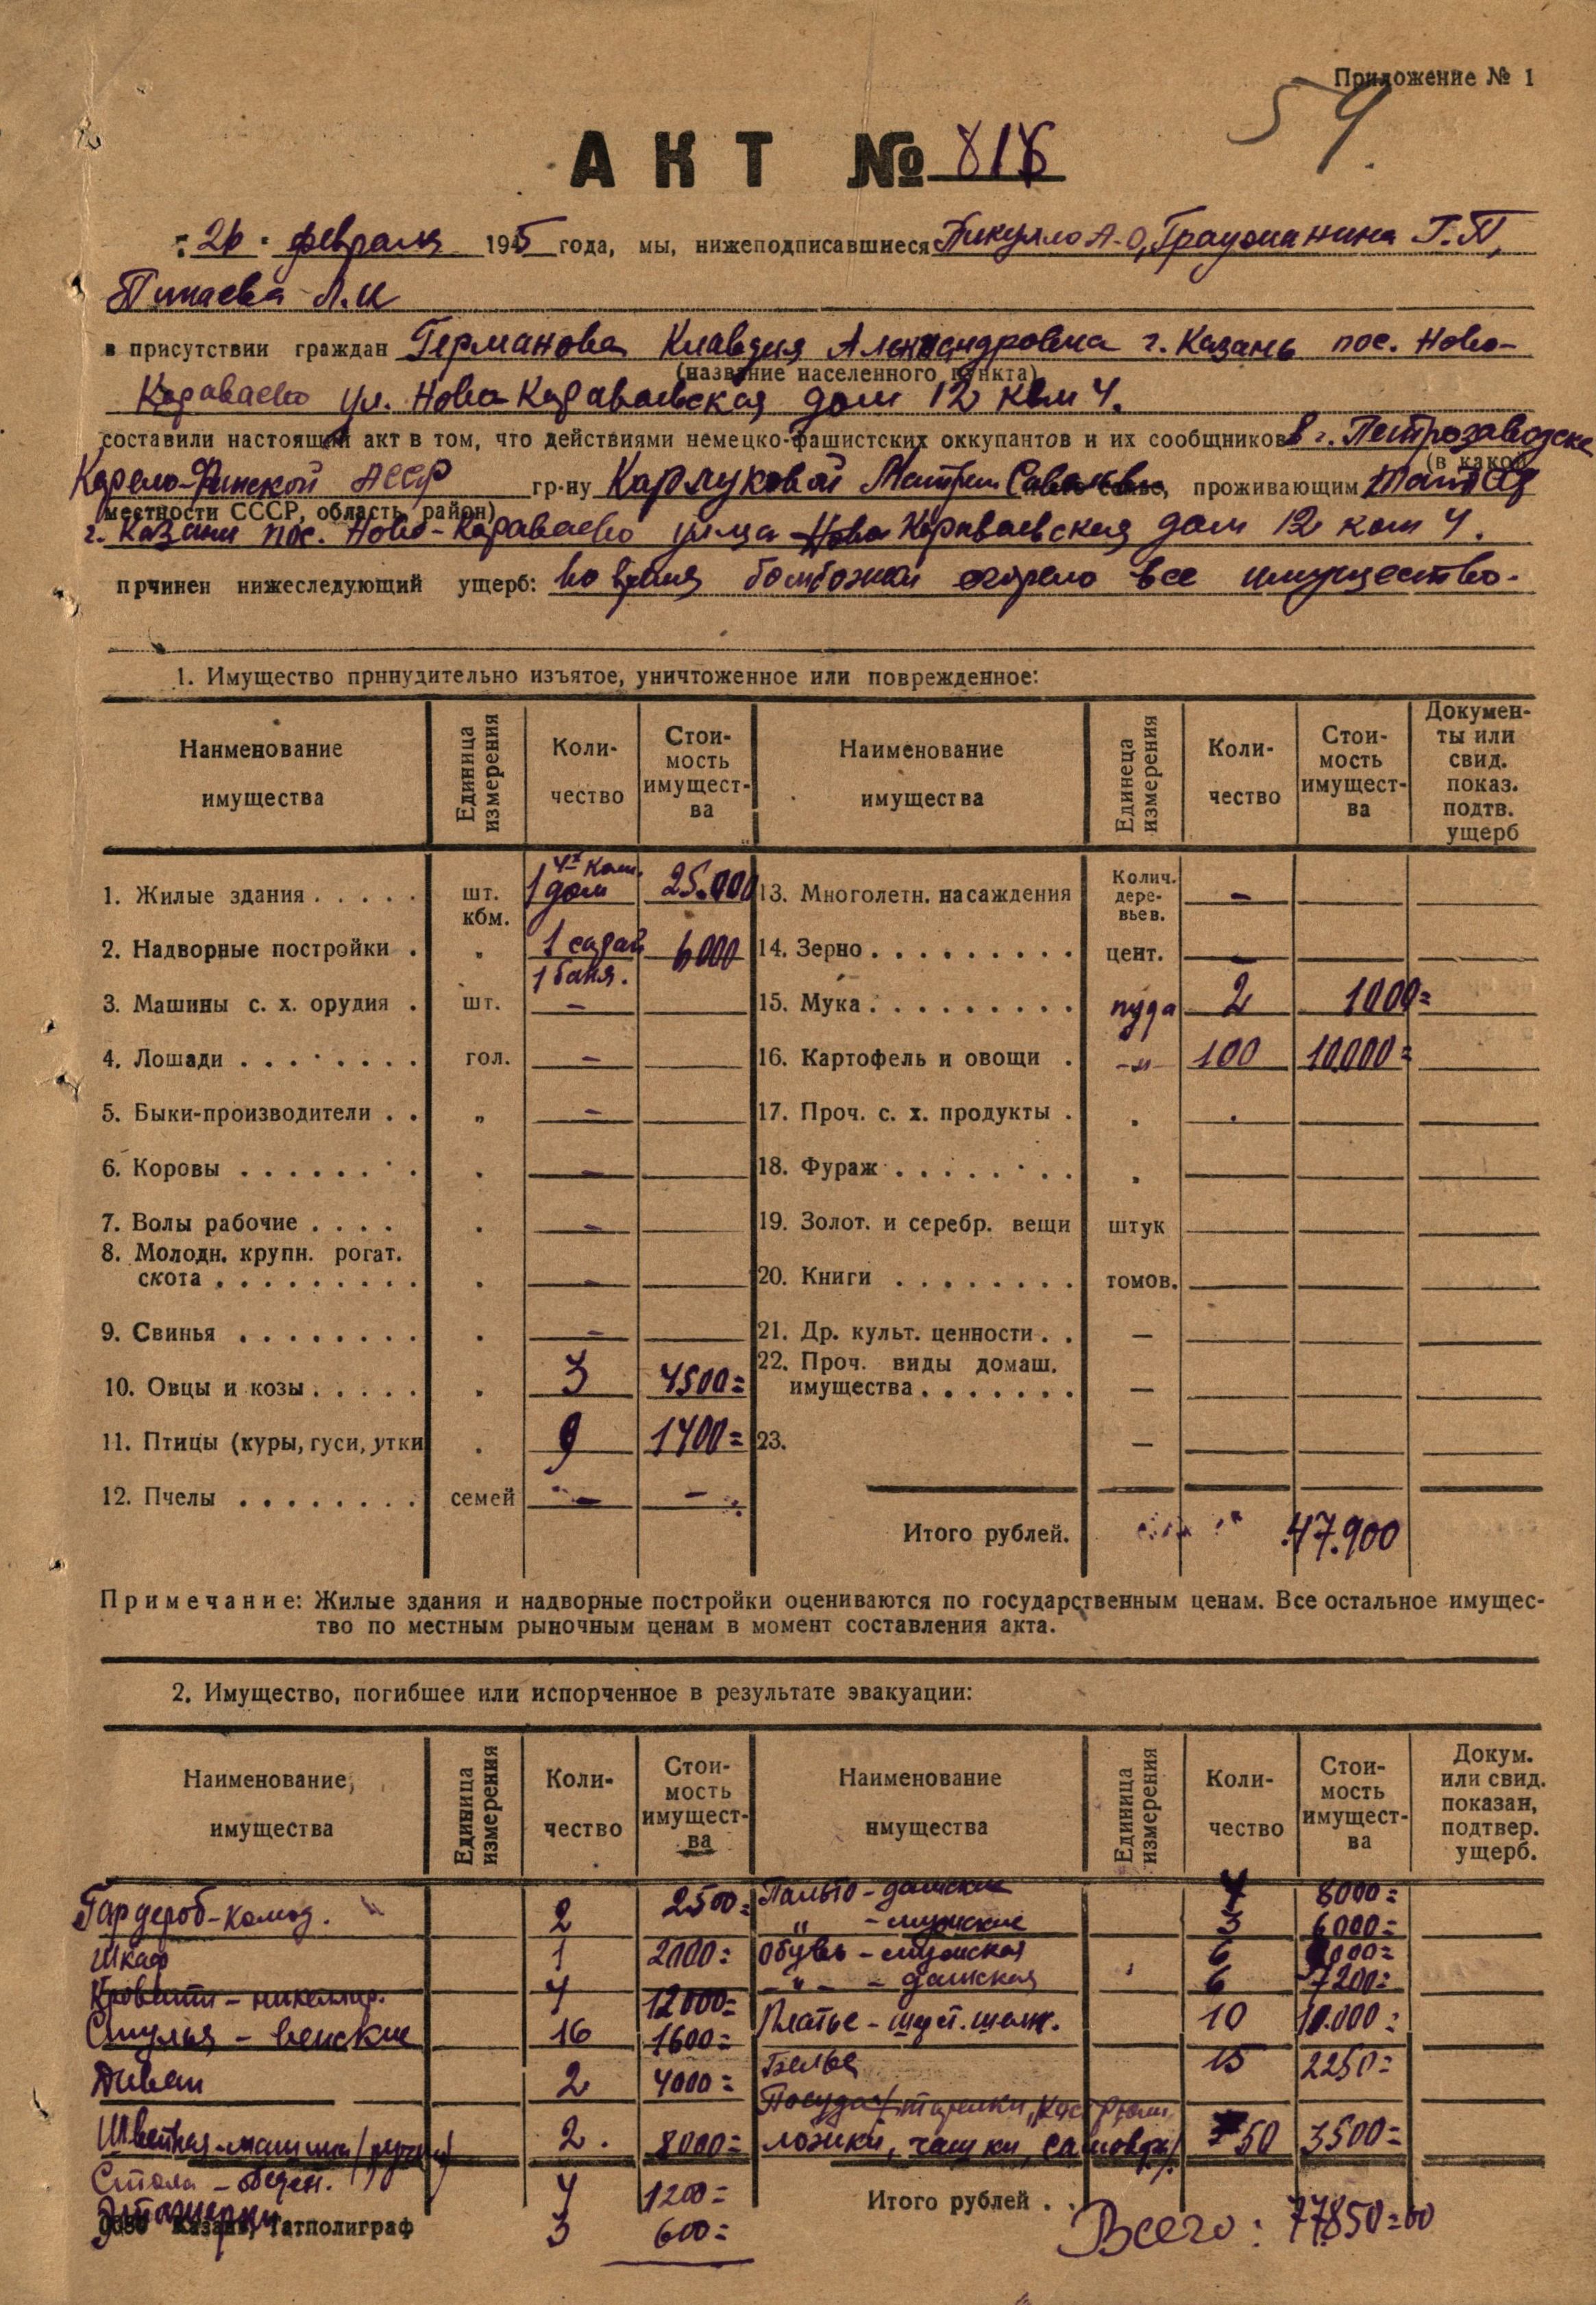 Приложение № 1
54
АКТ № 818
"26" февраля 1945 года, мы, нижеподписавшиеся Пикулло А-О, Грауоманина Г.П,
Пинаева Л.И
в присутствии граждан Германова Клавдия Александровна г. Казань пос. Ново-
(название населенного пункта)
Караваево ул. Ново Караваевская дом 12 ком 4.
составили настоящий акт в том, что действиями немецко-фашистских оккупантов и их сообщников в г. Петрозаводске
(в какой
Карело-Финской АССР гр-ну Карлуковой Матрен проживающим
местности СССР, область, район)
г. Казани пос. Ново-Караваево улица Ново Караваевская дом 12 ком 4.
прчинен нижеследующий ущерб: во время бомбожки сгорело все имущество.
1. Имущество прннудительно изъятое, уничтоженное или поврежденное:
Нанменование имущества Единица измерения Коли-чество Стои-мость имущест-ва Наименование имущества Единеца измерения Коли-чество Стои-мость имущест-ва Докумен-ты или свид. показ. подтв. ущерб
1. Жилые здания . . . . . шт. кбм. 4х ком. 1 дом 25.000 13. Многолетн. насаждения Колич. дере-вьев. -
2. Надворные постройки . „ 1 сарай 1 баня. 6000 14. Зерно . . . . . . . . . цент. -
3. Машины с. х. орудия . шт. - 15. Мука . . . . . . . . . пуда 2 1000=
4. Лошади . . . . . . . . гол. - 16. Картофель и овощи . -"- 100 10.000=
5. Быки-производители . . „ - 17. Проч. с. х. продукты . „
6. Коровы . . . . . . . . „ - 18. Фураж . . . . . . . . „
7. Волы рабочие . . . . „ - 19. Золот. и серебр. вещи штук
8. Молодн. крупн. рогат.
скота . . . . . . . . . „ - 20. Книги . . . . . . . . томов.
9. Свинья . . . . . . . . „ - 21. Др. культ. ценности . . —
10. Овцы и козы . . . . . „ 3 4500= 22. Проч. виды домаш. имущества . . . . . . . —
11. Птицы (куры, гуси, утки „ 9 1400= 23. —
12. Пчелы . . . . . . . . семей - -
Итого рублей. 47.900
Примечание: Жилые здания и надворные постройки оцениваются по государственным ценам. Все остальное имущес-
тво по местным рыночным ценам в момент составления акта.
2. Имущество, погибшее или испорченное в результате эвакуации:
Наименование, имущества Единица измерения Коли-чество Стои-мость имущест-ва Наименование имущества Единица измерения Коли-чество Стои-мость имущест-ва Докум. или свид. показан, подтвер. ущерб.
Гардероб-комод. 2 2500= Пальто - дамские 4 8000=
" - мужские 3 6000=
Шкаф 1 2000= Обувь - мужская 6 000=
-"- - дамская 6 7200=
Кровати - никелир. 4 12000= Платье - шерст. шелк. 10 10.000=
Стулья - венские 16 1600=
Диван 2 4000= Белье 15 2250=
Посуда /тарелки, кастрюли
Швейная-машина /ручная/ 2. 8000= ложки, чашки, самовар/ 50 3500=
Стола - обеден. 4 1200= Итого рублей . .
Этажерки 3 600= Всего: 77850=00
9080 Казань, Татполиграф